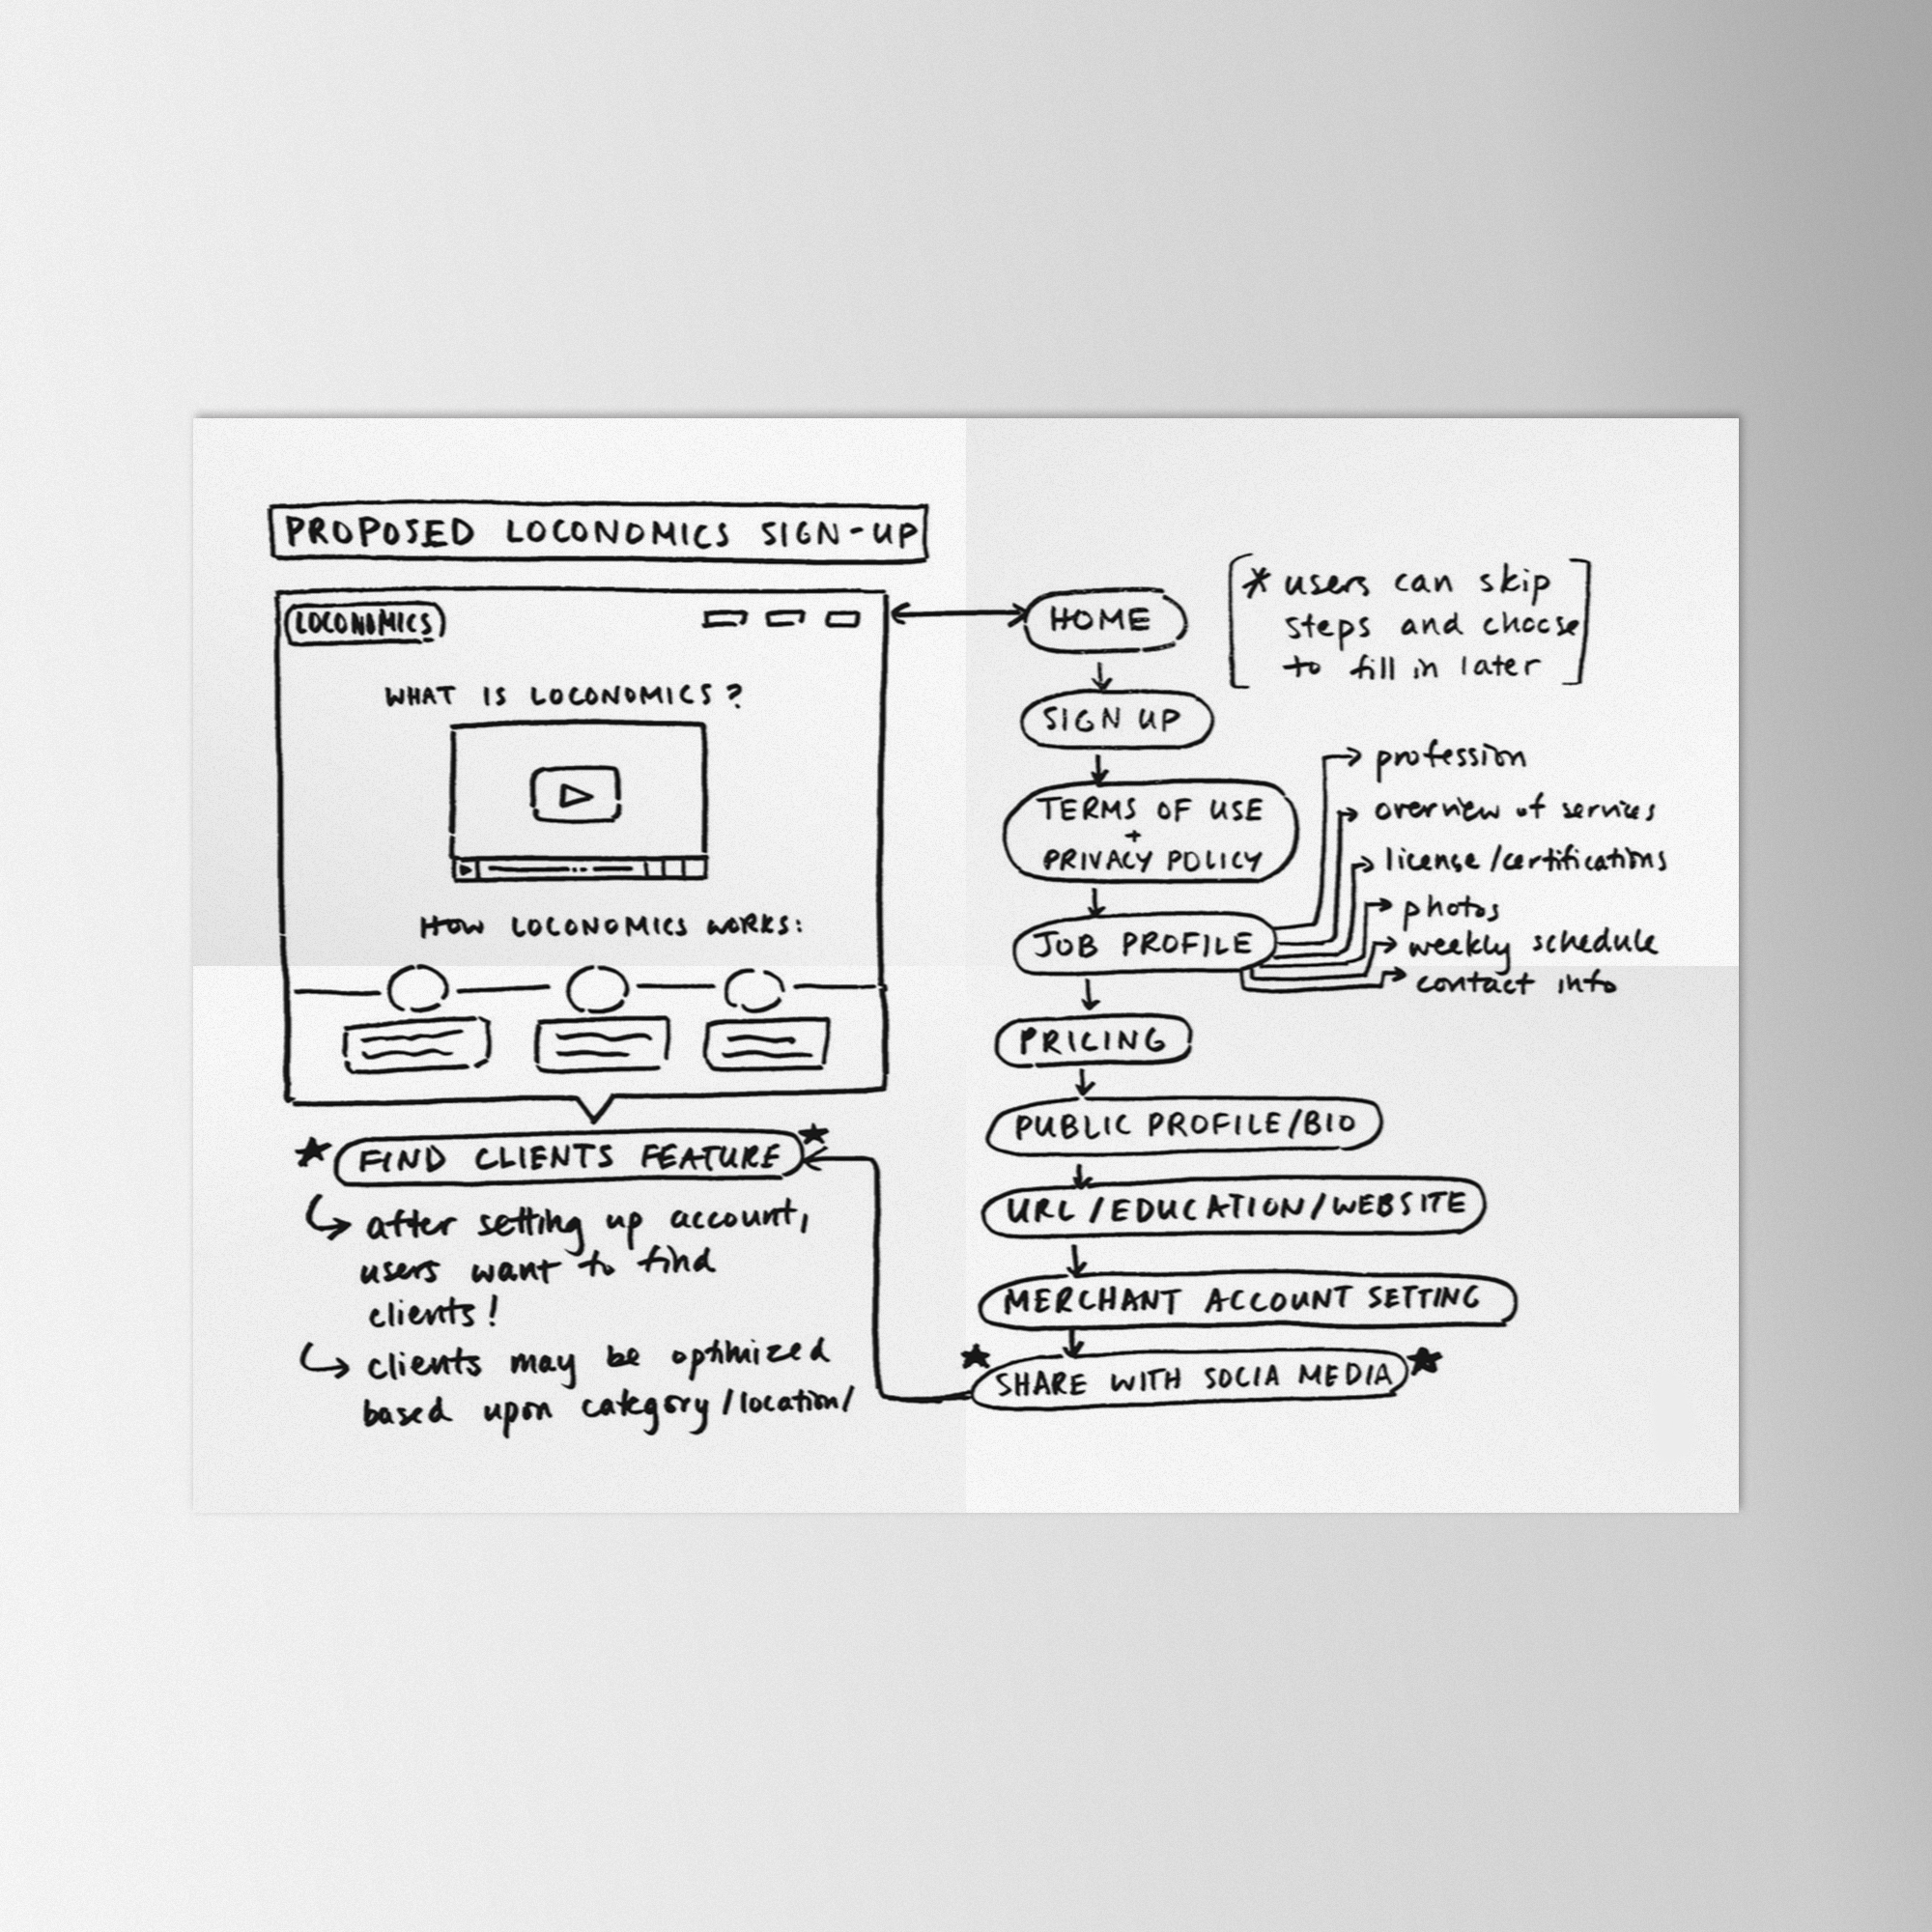 PROPOSED LOCONOMICS SIGN-UP
LOCONOMICS
WHAT IS LOCONOMICS?
HOW LOCONOMICS WORKS:
FIND CLIENTS FEATURE
after setting up account,
users want to find
clients!
clients may be optimized
based upon category/location/
HOME
* users can skip
steps and choose
to fill in later
SIGN UP
TERMS OF USE
+
PRIVACY POLICY
JOB PROFILE
profession
overview of services
license/certifications
photos
weekly schedule
contact info
PRICING
PUBLIC PROFILE/BIO
URL/EDUCATION/WEBSITE
MERCHANT ACCOUNT SETTING
SHARE WITH SOCIA MEDIA